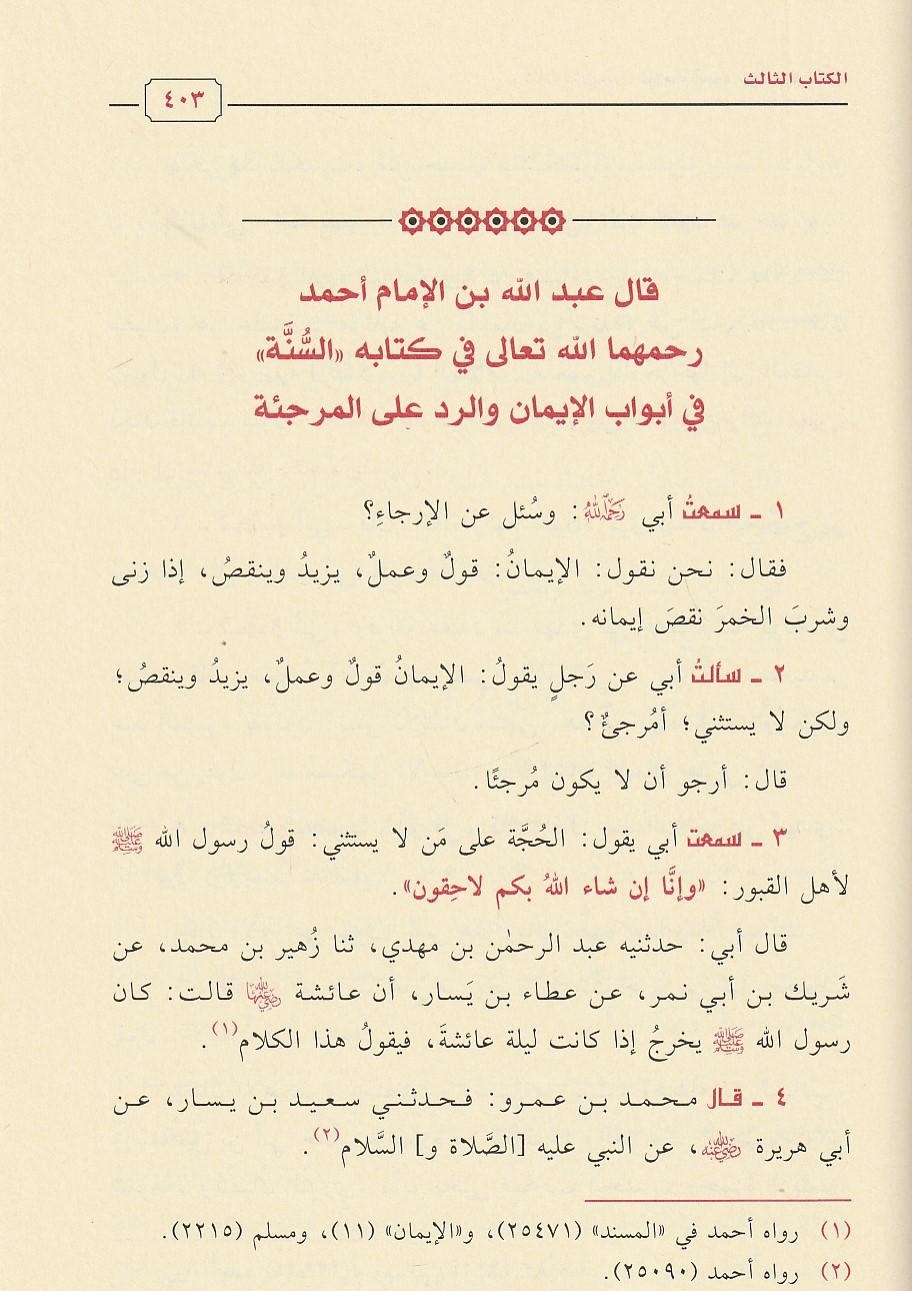 الكتاب الثالث
٤٠٣
قال عبد الله بن الإمام أحمد
رحمهما الله تعالى في كتابه «السُّنَّة»
في أبواب الإيمان والرد على المرجئة
١ ـ سمعتُ أبي رَحِمَهُ اللَّهُ: وسُئل عن الإرجاءِ؟
فقال: نحن نقول: الإيمانُ: قولٌ وعملٌ، يزيدُ وينقصُ، إذا زنى
وشربَ الخمرَ نقصَ إيمانه.
٢ ـ سألتُ أبي عن رَجلٍ يقولُ: الإيمانُ قولٌ وعملٌ، يزيدُ وينقصُ؛
ولكن لا يستثني؛ أمُرجئٌ؟
قال: أرجو أن لا يكون مُرجئًا.
٣ ـ سمعت أبي يقول: الحُجَّة على مَن لا يستثني: قولُ رسول الله ﷺ
لأهل القبور: «وإنَّا إن شاء اللهُ بكم لاحِقون».
قال أبي: حدثنيه عبد الرحمٰن بن مهدي، ثنا زُهير بن محمد، عن
شَريك بن أبي نمر، عن عطاء بن يَسار، أن عائشة رَضِيَ اللَّهُ عَنْهَا قالت: كان
رسول الله ﷺ يخرجُ إذا كانت ليلة عائشةَ، فيقولُ هذا الكلام(١).
٤ ـ قال محمد بن عمرو: فحدثني سعيد بن يسار، عن
أبي هريرة رَضِيَ اللَّهُ عَنْهُ، عن النبي عليه [الصَّلاة و] السَّلام(٢).
(١) رواه أحمد في «المسند» (٢٥٤٧١)، و«الإيمان» (١١)، ومسلم (٢٢١٥).
(٢) رواه أحمد (٢٥٠٩٠).